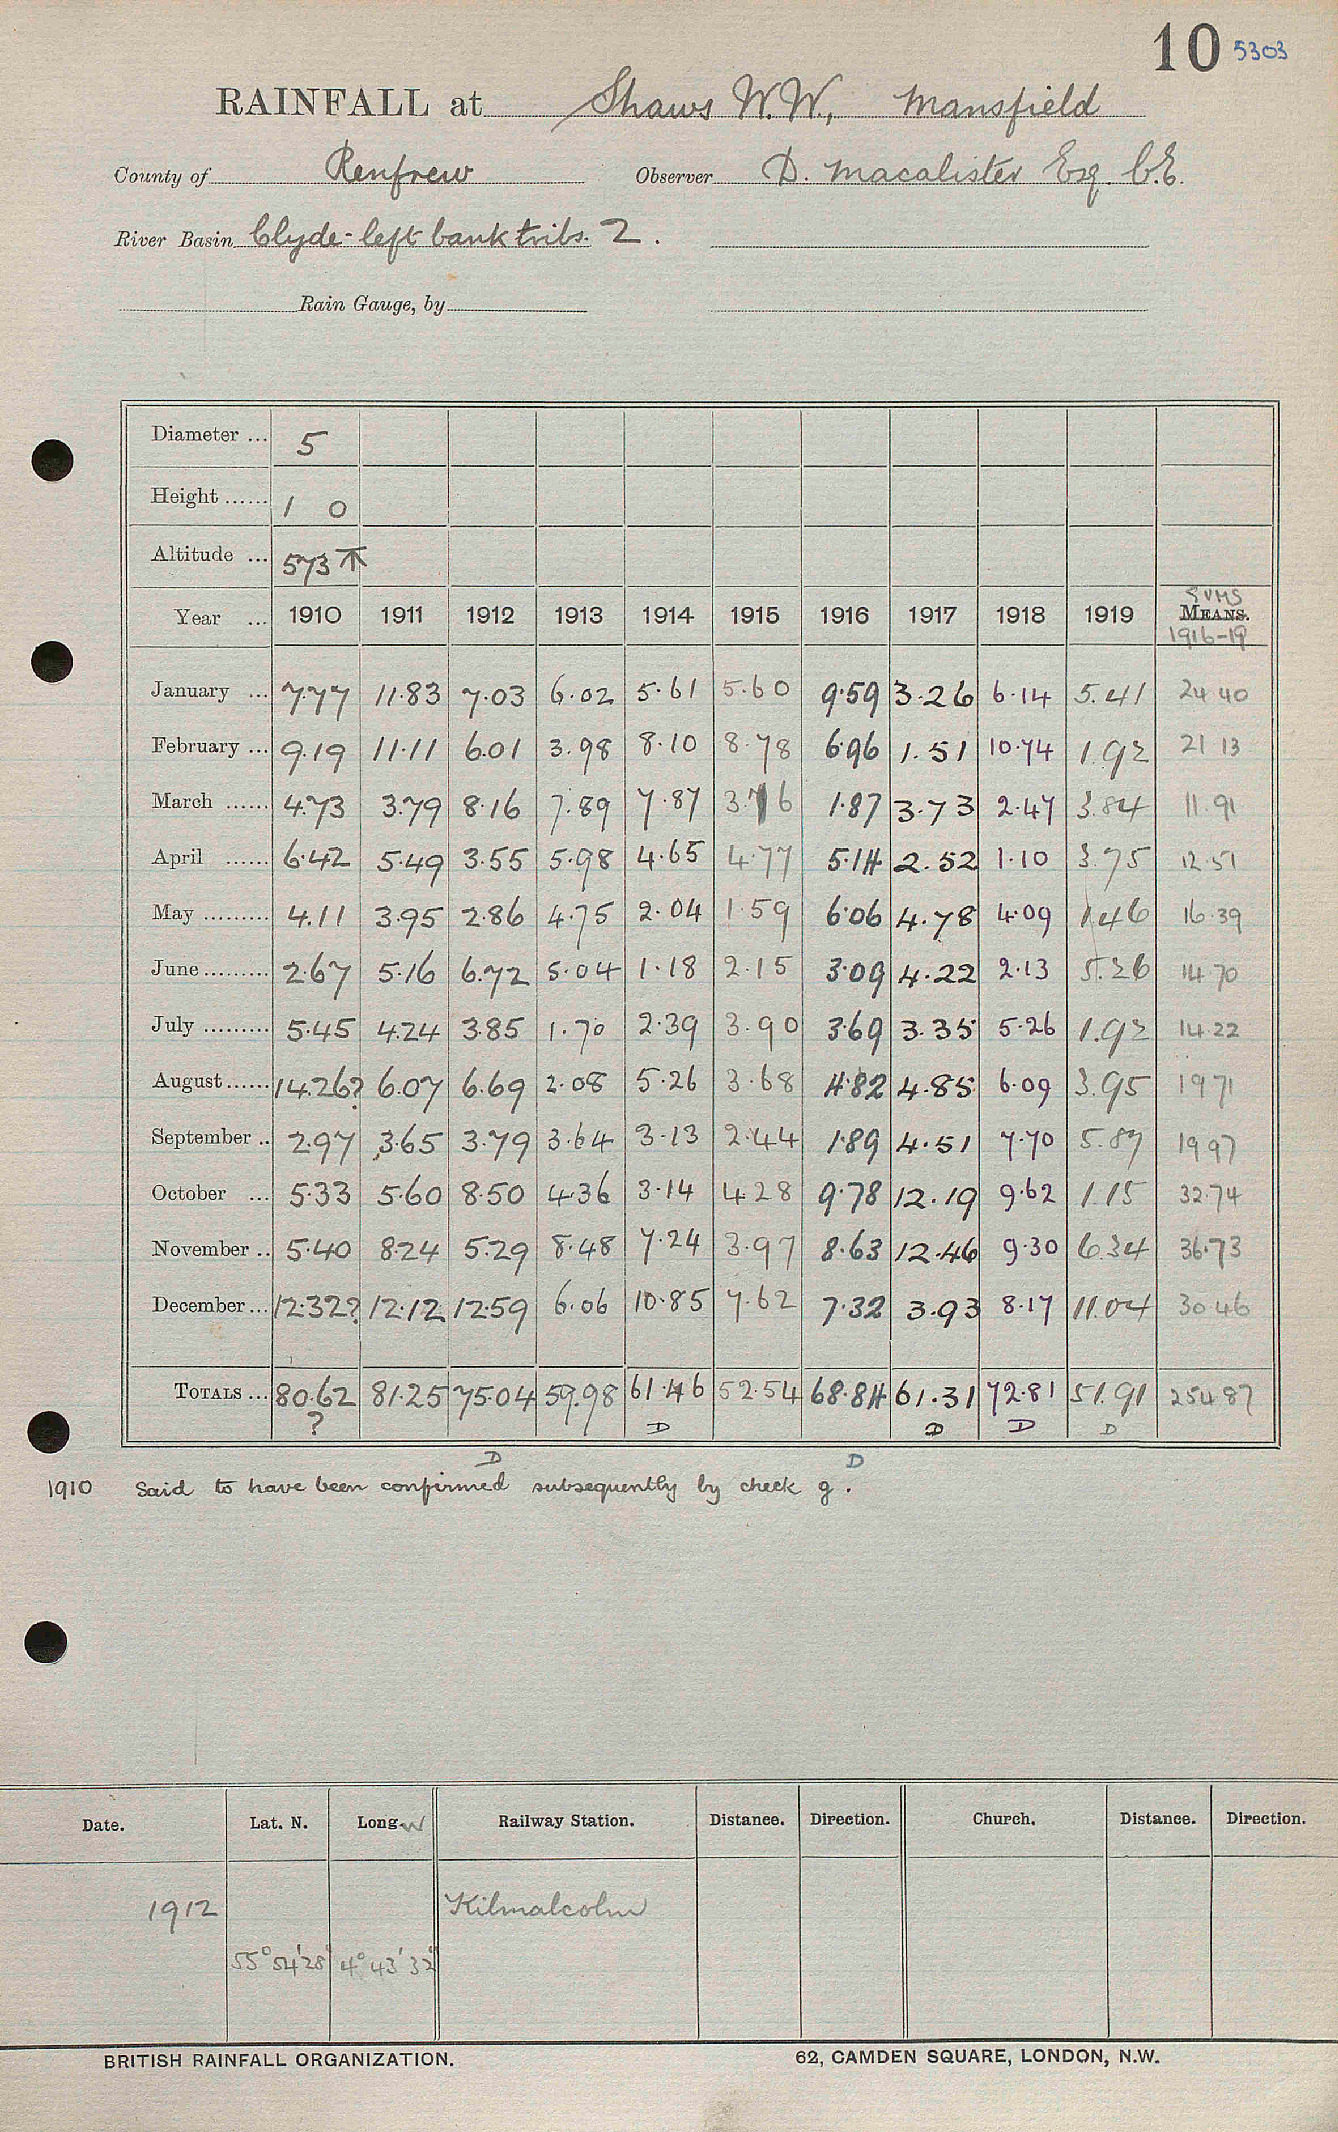 10 5303
RAINFALL at Shaws W.W., Mansfield
County of Renfrew Observer D. Macalister Esq. C.E.
River Basin Clyde-left bank tribs. 2.
Rain Gauge, by
Diameter ... 5
Height ...... 1 0
Altitude ... 573 T
SUMS
Year ... 1910 1911 1912 1913 1914 1915 1916 1917 1918 1919 MEANS.
1916-19
January ... 7.77 11.83 7.03 6.02 5.61 5.60 9.59 3.26 6.14 5.41 24.40
February ... 9.19 11.11 6.01 3.98 8.10 8.78 6.96 1.51 10.74 1.92 21 13
March ...... 4.73 3.79 8.16 7.89 7.87 3.76 1.87 3.73 2.47 3.84 11.91
April ...... 6.42 5.49 3.55 5.98 4.65 4.77 5.14 2.52 1.10 3.75 12.51
May ......... 4.11 3.95 2.86 4.75 2.04 1.59 6.06 4.78 4.09 1.46 16.39
June ......... 2.67 5.16 6.72 5.04 1.18 2.15 3.09 4.22 2.13 5.26 14.70
July ......... 5.45 4.24 3.85 1.70 2.39 3.90 3.69 3.35 5.26 1.92 14.22
August ...... 14.26? 6.07 6.69 2.08 5.26 3.68 4.82 4.85 6.09 3.95 19 71
September .. 2.97 3.65 3.79 3.64 3.13 2.44 1.89 4.51 7.70 5.87 19 97
October ... 5.33 5.60 8.50 4.36 3.14 4.28 9.78 12.19 9.62 1.15 32.74
November .. 5.40 8.24 5.29 8.48 7.24 3.97 8.63 12.46 9.30 6.34 36.73
December ... 12.32? 12.12 12.59 6.06 10.85 7.62 7.32 3.93 8.17 11.04 30.46
TOTALS ... 80.62 81.25 75.04 59.98 61.46 52.54 68.84 61.31 72.81 51.91 254 87
? D D D D
D D
1910 Said to have been confirmed subsequently by check g.
Date. Lat. N. Long. W Railway Station. Distance. Direction. Church. Distance. Direction.
1912 Kilmalcolm
55° 54' 28" 4° 43' 32"
BRITISH RAINFALL ORGANIZATION. 62, CAMDEN SQUARE, LONDON, N.W.